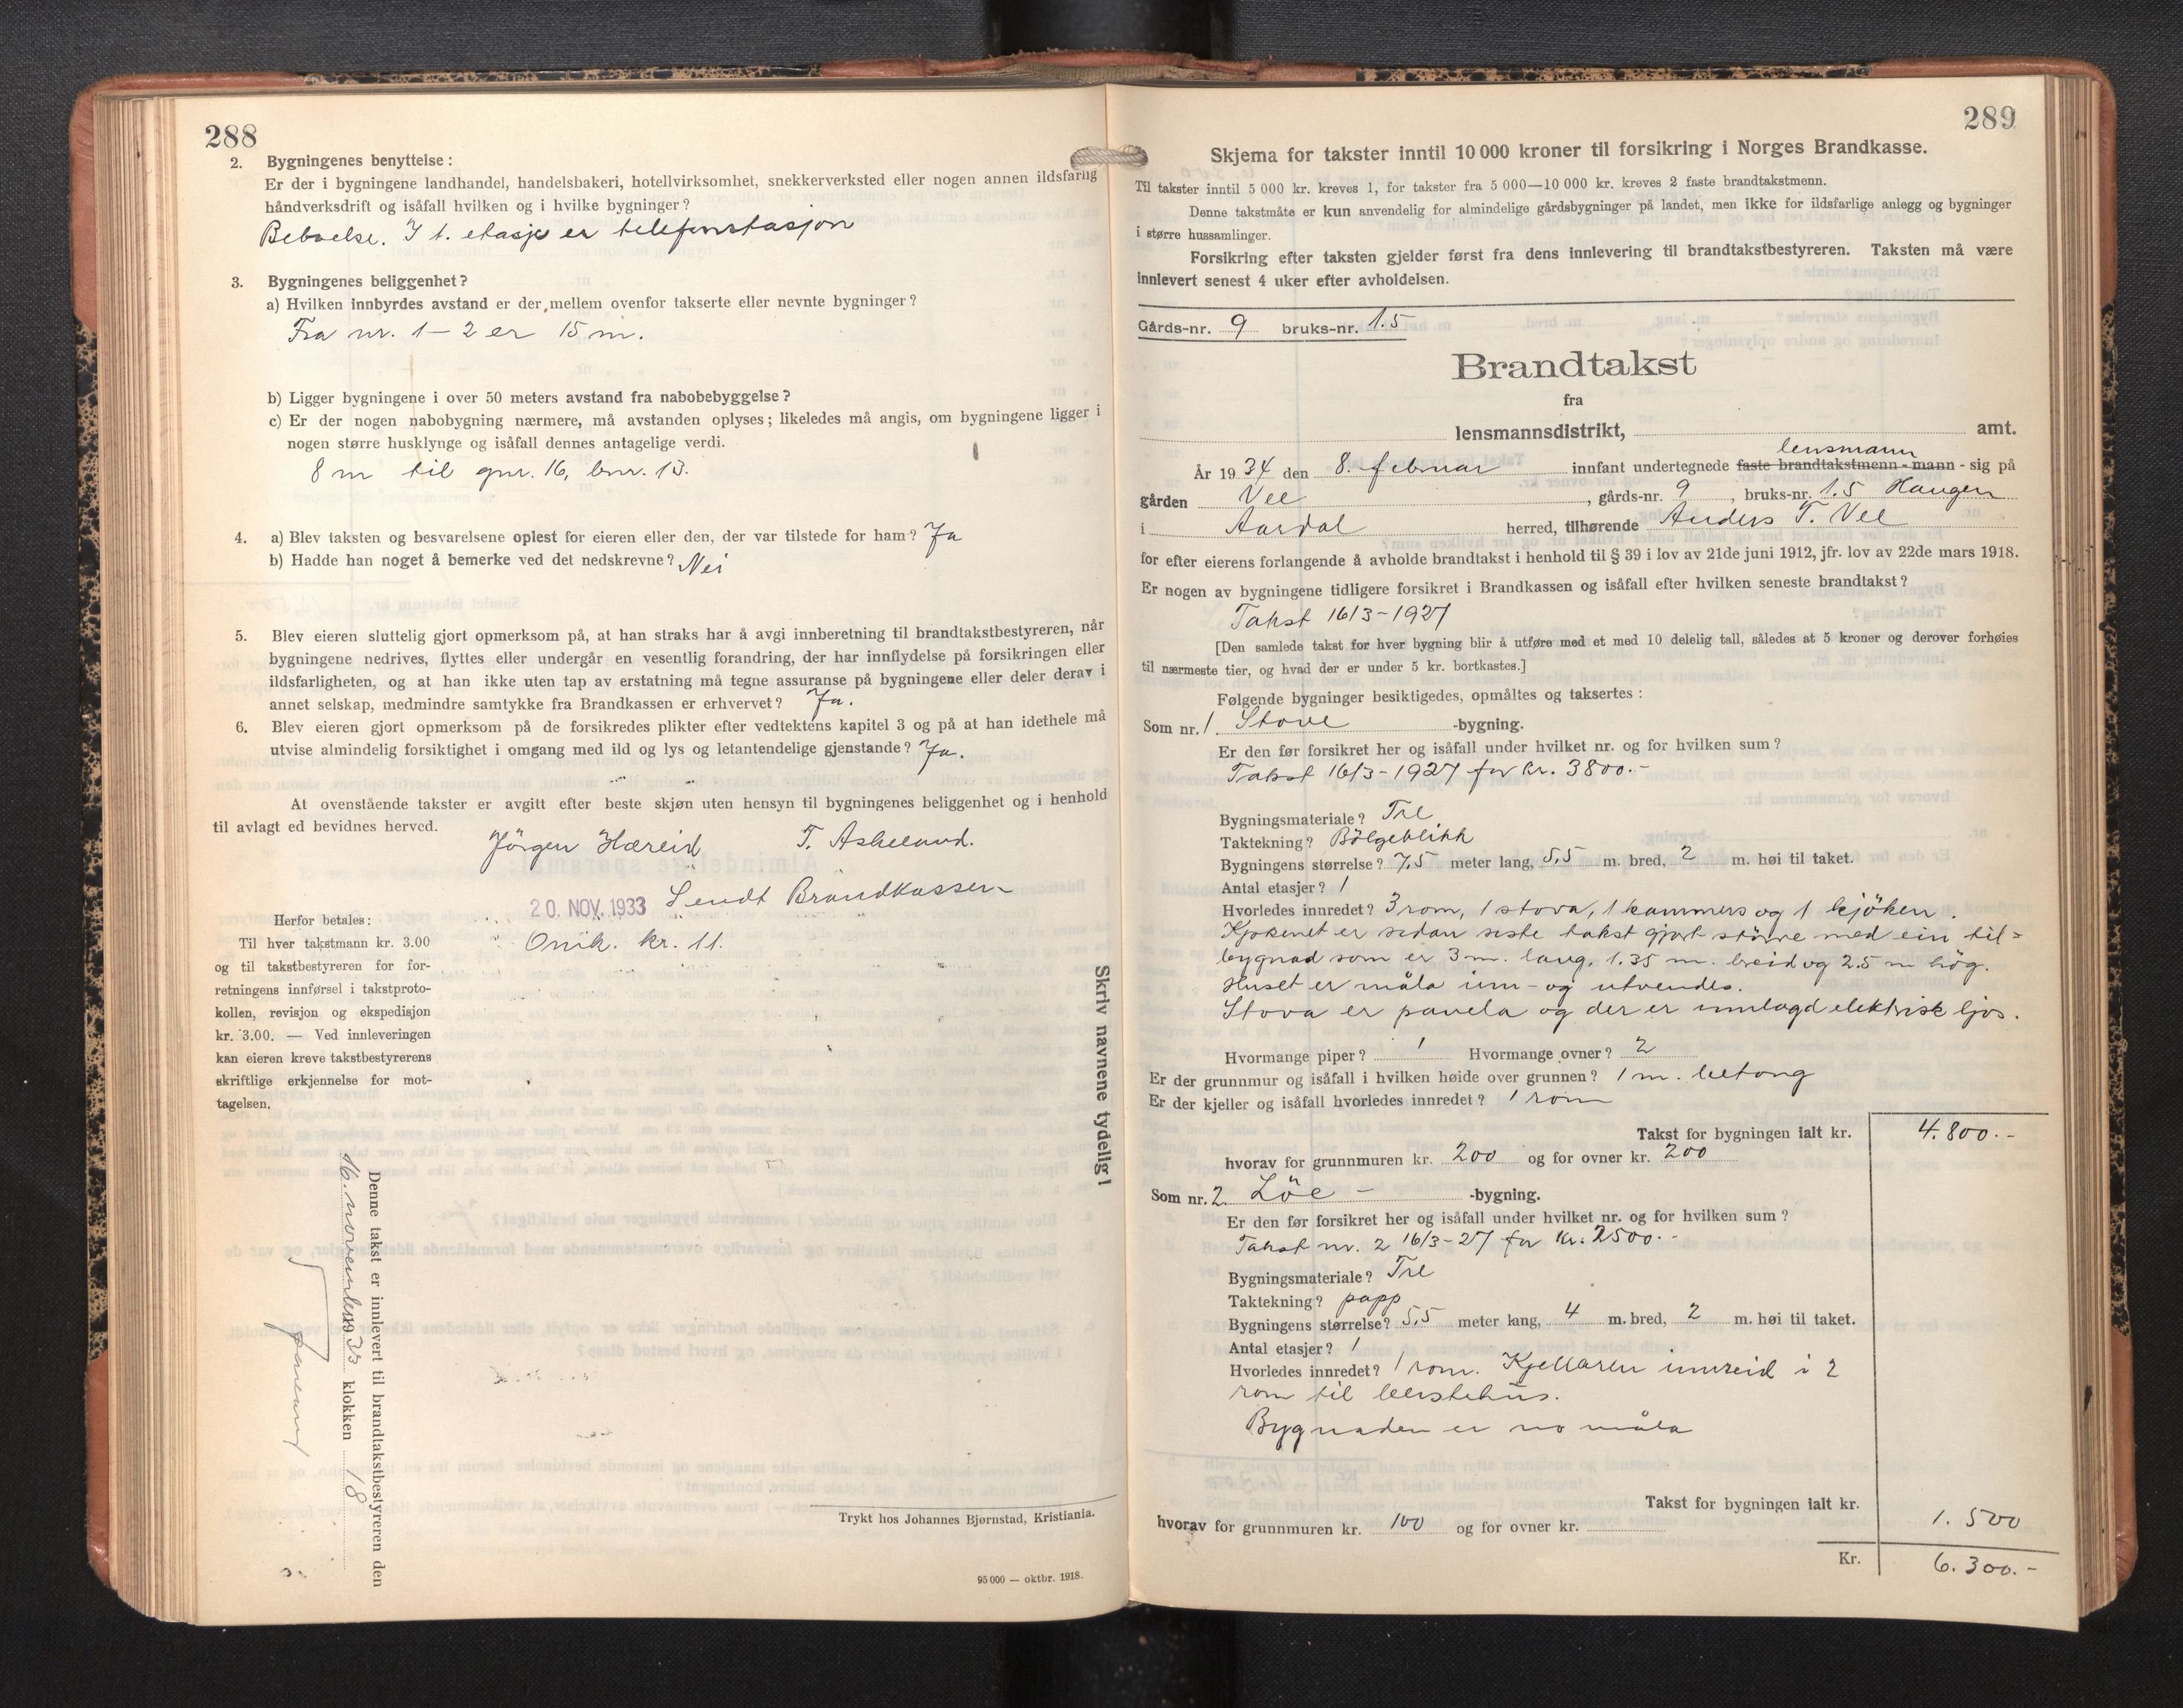 288
2. Bygningenes benyttelse:
Er der i bygningene landhandel, handelsbakeri, hotellvirksomhet, snekkerverksted eller nogen annen ildsfarlig
håndverksdrift og isåfall hvilken og i hvilke bygninger?
Beboelse. I 1. etasje er telefonstasjon
3. Bygningenes beliggenhet?
a) Hvilken innbyrdes avstand er der mellem ovenfor takserte eller nevnte bygninger?
Fra nr. 1 – 2 er 15 m.
b) Ligger bygningene i over 50 meters avstand fra nabobebyggelse?
c) Er der nogen nabobygning nærmere, må avstanden oplyses; likeledes må angis, om bygningene ligger i
nogen større husklynge og isåfall dennes antagelige verdi.
8 m til gnr. 16, bnr. 13.
4. a) Blev taksten og besvarelsene oplest for eieren eller den, der var tilstede for ham? Ja
b) Hadde han noget å bemerke ved det nedskrevne? Nei
5. Blev eieren sluttelig gjort opmerksom på, at han straks har å avgi innberetning til brandtakstbestyreren, når
bygningene nedrives, flyttes eller undergår en vesentlig forandring, der har innflydelse på forsikringen eller
ildsfarligheten, og at han ikke uten tap av erstatning må tegne assuranse på bygningene eller deler derav i
annet selskap, medmindre samtykke fra Brandkassen er erhvervet? Ja.
6. Blev eieren gjort opmerksom på de forsikredes plikter efter vedtektens kapitel 3 og på at han idethele må
utvise almindelig forsiktighet i omgang med ild og lys og letantendelige gjenstande? Ja.
At ovenstående takster er avgitt efter beste skjøn uten hensyn til bygningenes beliggenhet og i henhold
til avlagt ed bevidnes herved.
Jörgen Hæreid T. Askeland.
20. NOV. 1933 Sendt Brandkassen
Omk. kr. 11.
Herfor betales:
Til hver takstmann kr. 3.00
og til takstbestyreren for for-
retningens innførsel i takstproto-
kollen, revisjon og ekspedisjon
kr. 3.00. — Ved innleveringen
kan eieren kreve takstbestyrerens
skriftlige erkjennelse for mot-
tagelsen.
Skriv navnene tydelig!
Denne takst er innlevert til brandtakstbestyreren den
16. november 1933 klokken 18
Trykt hos Johannes Bjørnstad, Kristiania.
95 000 — oktbr. 1918.
289
Skjema for takster inntil 10 000 kroner til forsikring i Norges Brandkasse.
Til takster inntil 5 000 kr. kreves 1, for takster fra 5 000—10 000 kr. kreves 2 faste brandtakstmenn.
Denne takstmåte er kun anvendelig for almindelige gårdsbygninger på landet, men ikke for ildsfarlige anlegg og bygninger
i større hussamlinger.
Forsikring efter taksten gjelder først fra dens innlevering til brandtakstbestyreren. Taksten må være
innlevert senest 4 uker efter avholdelsen.
Gårds-nr. 9 bruks-nr. 1.5
Brandtakst
fra
lensmannsdistrikt, amt.
lensmann
År 1934 den 8. februar innfant undertegnede faste brandtakstmenn - mann - sig på
gården Vee, gårds-nr. 9, bruks-nr. 1.5 Haugen
i Aardal herred, tilhørende Anders T. Vee
for efter eierens forlangende å avholde brandtakst i henhold til § 39 i lov av 21de juni 1912, jfr. lov av 22de mars 1918.
Er nogen av bygningene tidligere forsikret i Brandkassen og isåfall efter hvilken seneste brandtakst?
Takst 16/3 – 1927
[Den samlede takst for hver bygning blir å utføre med et med 10 delelig tall, således at 5 kroner og derover forhøies
til nærmeste tier, og hvad der er under 5 kr. bortkastes.]
Følgende bygninger besiktigedes, opmåltes og taksertes:
Som nr. 1 Stove -bygning.
Er den før forsikret her og isåfall under hvilket nr. og for hvilken sum?
Takst 16/3 – 1927 for kr. 3800.-
Bygningsmateriale? Tre
Taktekning? Bölgeblikk
Bygningens størrelse? 7,5 meter lang, 5,5 m. bred, 2 m. høi til taket.
Antal etasjer? 1
Hvorledes innredet? 3 rom, 1 stova, 1 kammers og 1 kjöken.
Kjökenet er sidan siste takst gjort större med ein til=
bygnad som er 3 m. lang, 1.35 m. breid og 2.5 m hög.
Huset er måla inn- og utvendes.
Stova er panela og der er innlagd elektrisk ljos.
Hvormange piper? 1 Hvormange ovner? 2
Er der grunnmur og isåfall i hvilken høide over grunnen? 1 m. betong
Er der kjeller og isåfall hvorledes innredet? 1 rom
Takst for bygningen ialt kr. 4.800.-
hvorav for grunnmuren kr. 200 og for ovner kr. 200
Som nr. 2. Löe – -bygning.
Er den før forsikret her og isåfall under hvilket nr. og for hvilken sum?
Takst nr. 2 16/3-27 for kr. 2500.-
Bygningsmateriale? Tre
Taktekning? papp
Bygningens størrelse? 5,5 meter lang, 4 m. bred, 2 m. høi til taket.
Antal etasjer? 1
Hvorledes innredet? 1 rom. Kjellaren innreid i 2
rom til
Bygnaden er no måla
Takst for bygningen ialt kr.
hvorav for grunnmuren kr. 100 og for ovner kr. 1.500
Kr. 6.300.-